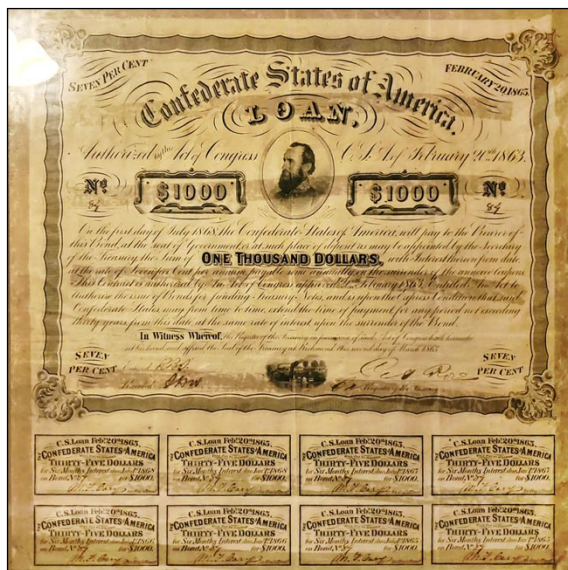 SEVEN PER CENT
FEBRUARY 20, 1863.
Confederate States of America
LOAN,
Authorized by the Act of Congress C. S. A. of February 20th 1863.
No
$1000
$1000
No
On the first day of July 1868, the Confederate States of America, will pay to the Bearer of
this Bond, at the seat of Government or at such place of deposit as may be appointed by the Secretary
of the Treasury, the Sum of ONE THOUSAND DOLLARS, with Interest thereon from date
at the rate of Seven per Cent per annum, payable semi annually, on the surrender of the annexed Coupons
This Contract is authorized by an Act of Congress approved February 1863, Entitled An Act to
authorize the issue of Bonds for funding Treasury Notes, and is upon the Express Condition that said
Confederate States may from time to time, extend the time of payment for any period not exceeding
thirty years from this date, at the same rate of interest upon the surrender of the Bond.
In Witness Whereof, the Register of the Treasury, in pursuance of said Act of Congress, hath hereunto
set his hand and affixed the Seal of the Treasury at Richmond this second day of March 1863
SEVEN PER CENT
SEVEN PER CENT
Register of the Treasury
C.S. Loan Feb. 20th 1863.
THE CONFEDERATE STATES OF AMERICA
THIRTY-FIVE DOLLARS
for Six Months Interest due Jan. 1st 1868
on Bond, No 87 for $1000.
C.S. Loan Feb. 20th 1863.
THE CONFEDERATE STATES OF AMERICA
THIRTY-FIVE DOLLARS
for Six Months Interest due
on Bond, No 87 for $1000.
C.S. Loan Feb. 20th 1863.
THE CONFEDERATE STATES OF AMERICA
THIRTY-FIVE DOLLARS
for Six Months Interest due
on Bond, No 87 for $1000.
C.S. Loan Feb. 20th 1863.
THE CONFEDERATE STATES OF AMERICA
THIRTY-FIVE DOLLARS
for Six Months Interest due
on Bond, No 87 for $1000.
C.S. Loan Feb. 20th 1863.
THE CONFEDERATE STATES OF AMERICA
THIRTY-FIVE DOLLARS
for Six Months Interest due
on Bond, No 87 for $1000.
C.S. Loan Feb. 20th 1863.
THE CONFEDERATE STATES OF AMERICA
THIRTY-FIVE DOLLARS
for Six Months Interest due
on Bond, No 87 for $1000.
C.S. Loan Feb. 20th 1863.
THE CONFEDERATE STATES OF AMERICA
THIRTY-FIVE DOLLARS
for Six Months Interest due
on Bond, No 87 for $1000.
C.S. Loan Feb. 20th 1863.
THE CONFEDERATE STATES OF AMERICA
THIRTY-FIVE DOLLARS
for Six Months Interest due
on Bond, No 87 for $1000.